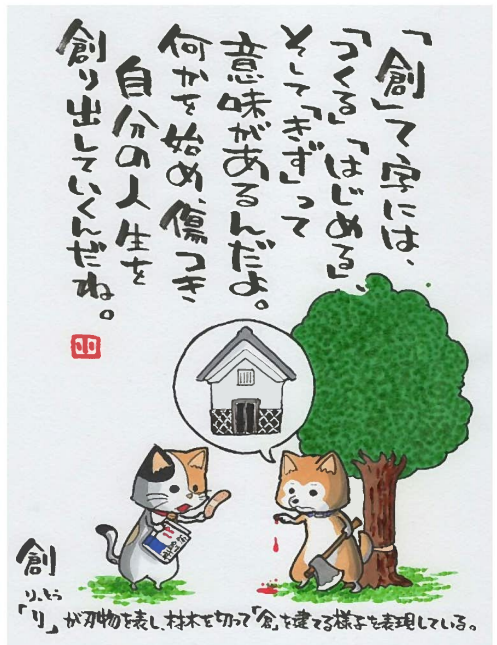 「創」て字には、
「つくる」「はじめる」、
そして「きず」って
意味があるんだよ。
何かを始め、傷つき
自分の人生を
創り出していくんだね。
創
りっとう
「刂」が刃物を表し、材木を切って「倉」を建てる様子を表現している。